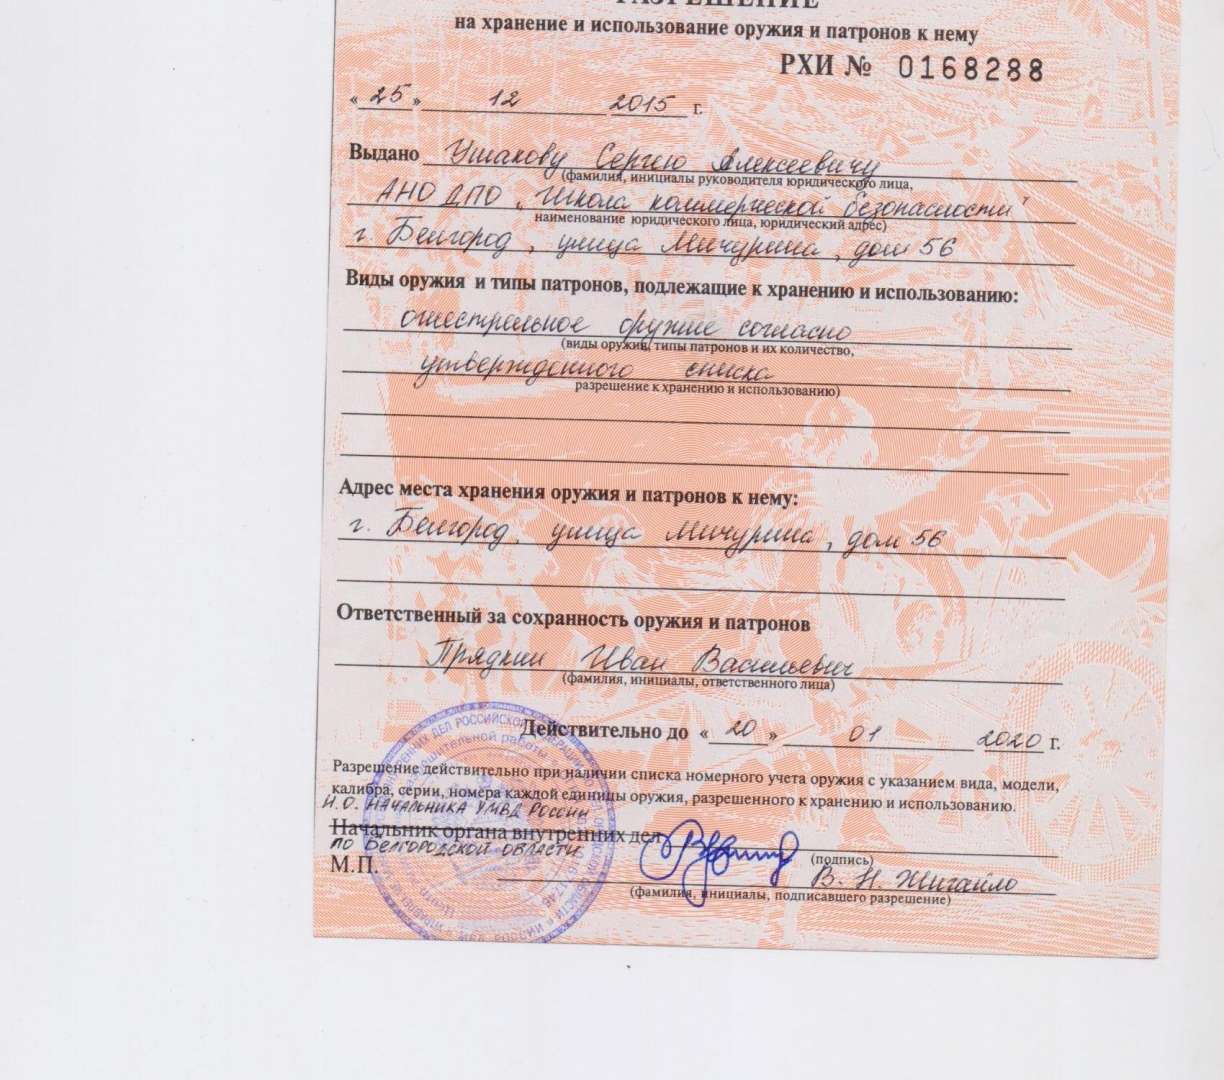 РАЗРЕШЕНИЕ
на хранение и использование оружия и патронов к нему
РХИ № 0168288
« 25 » 12 2015 г.
Выдано Ушакову Сергею Алексеевичу
(фамилия, инициалы руководителя юридического лица,
АНО ДПО „ Школа коммерческой безопасности "
наименование юридического лица, юридический адрес)
г. Белгород, улица Мичурина, дом 56
Виды оружия и типы патронов, подлежащие к хранению и использованию:
огнестрельное оружие согласно
(виды оружия, типы патронов и их количество,
утвержденного списка
разрешение к хранению и использованию)
Адрес места хранения оружия и патронов к нему:
г. Белгород, улица Мичурина, дом 56
Ответственный за сохранность оружия и патронов
Прядкин Иван Васильевич
(фамилия, инициалы, ответственного лица)
Действительно до « 20 » 01 2020 г.
Разрешение действительно при наличии списка номерного учета оружия с указанием вида, модели,
калибра, серии, номера каждой единицы оружия, разрешенного к хранению и использованию.
И.О. НАЧАЛЬНИКА УМВД РОССИИ
Начальник органа внутренних дел
ПО БЕЛГОРОДСКОЙ ОБЛАСТИ
(подпись)
М.П.
В. Н. Жигайло
(фамилия, инициалы, подписавшего разрешение)